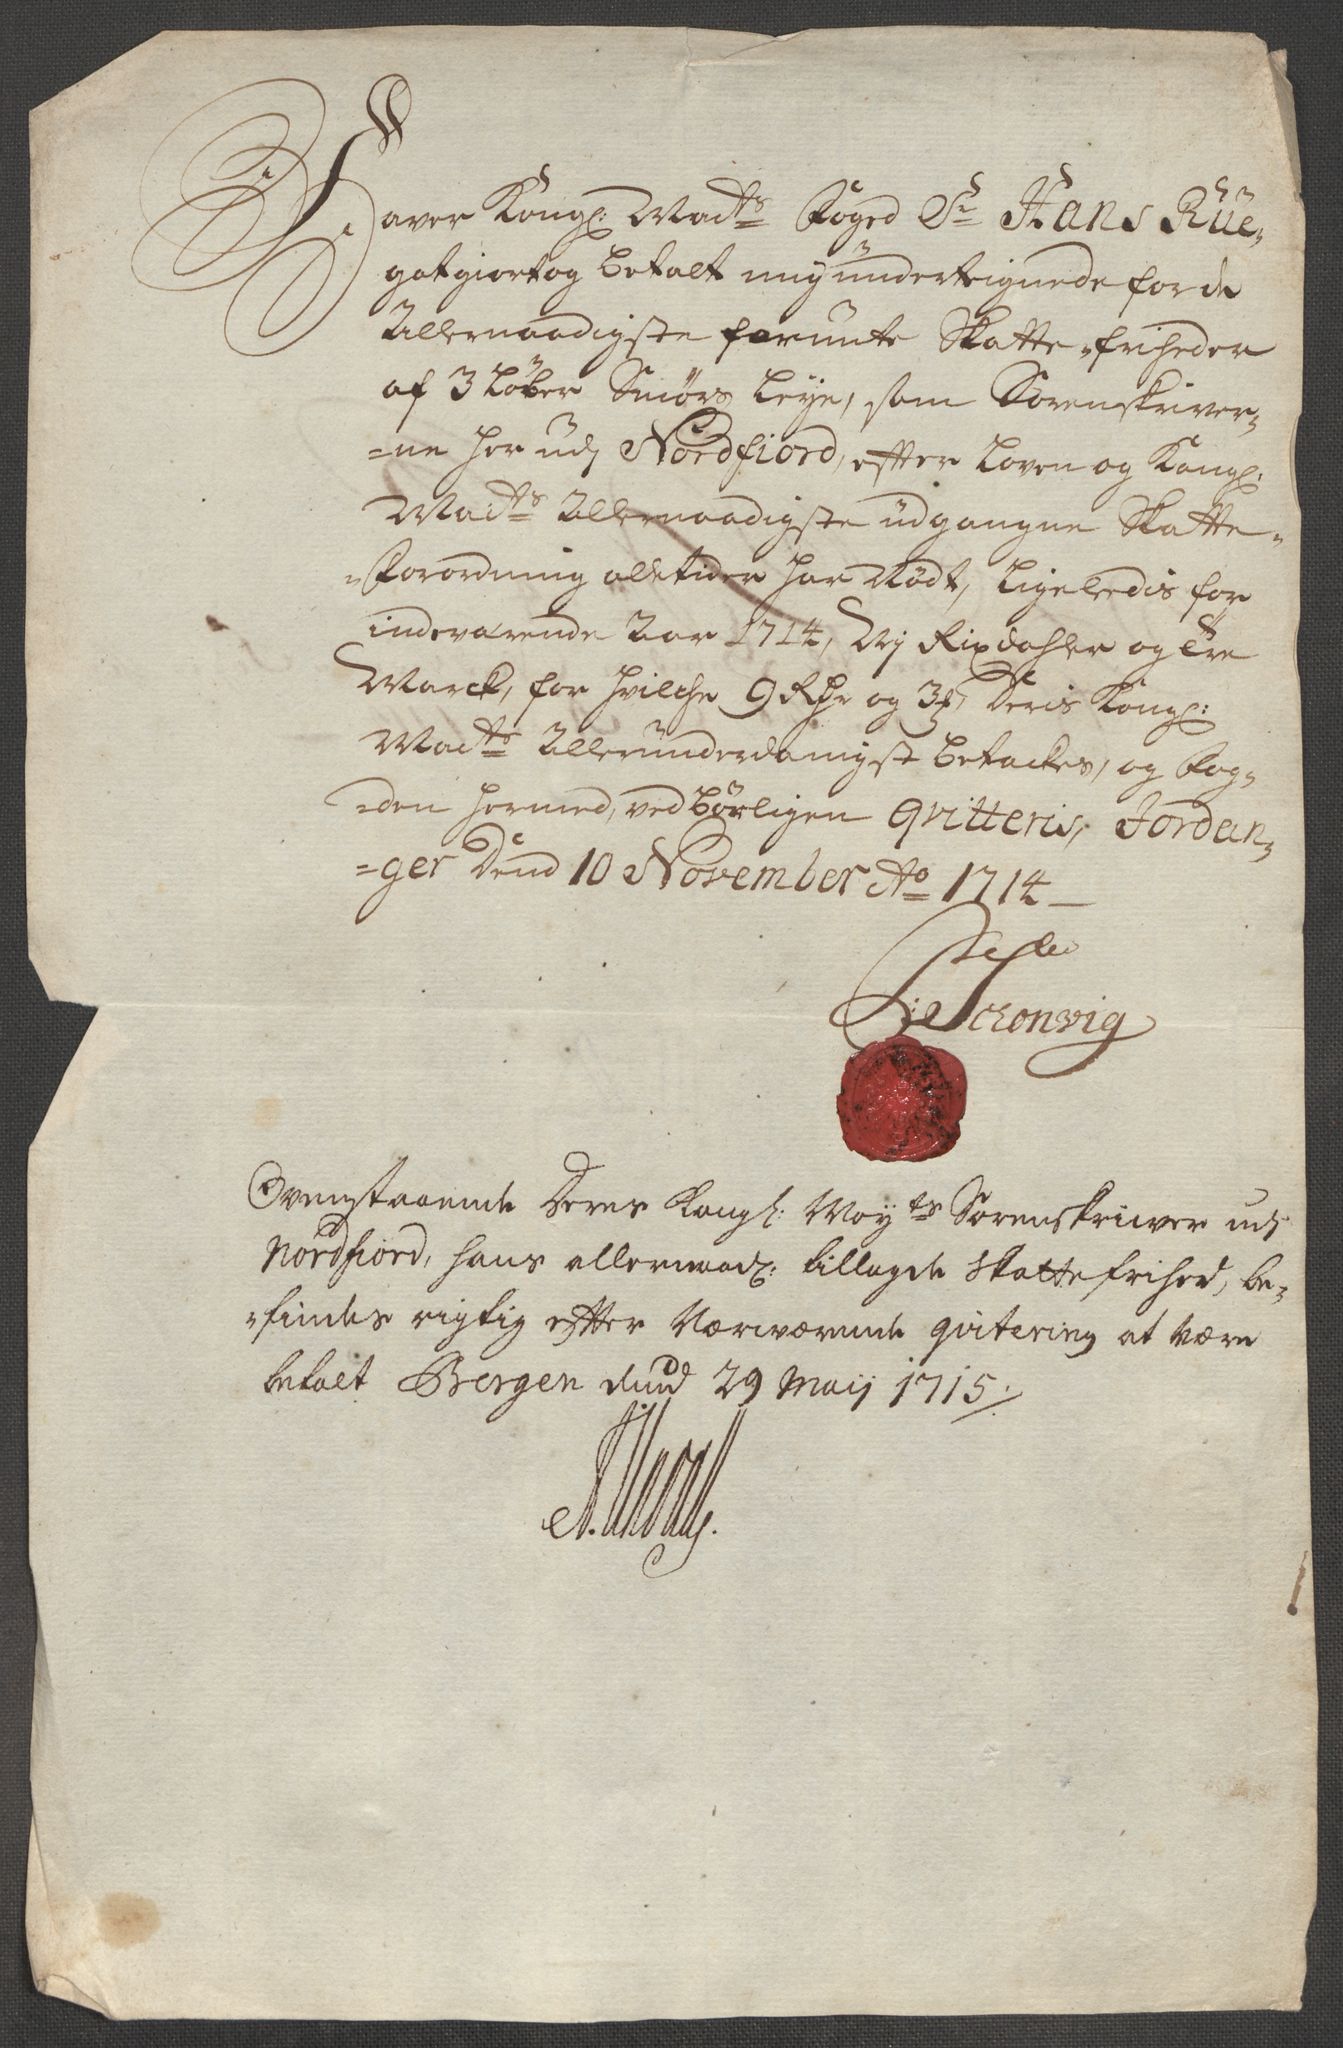 Haver Kongl: Maÿts Foged Sr Hans Rüe-
gotgiort og betalt mig underteignede for de
Allernaadigste forunte Skatte-friheder
af 3 Løber Smørs Leye, som Sorenskriver-
=ne her udj Nordfiord, effter Loven og Kongl:
Maÿts Allernaadigste udgangne Skatte-
-Forordning alletider har Nødt, Ligeledis for
indeværende Aar 1714, Nj Rixdahler og tre
Marck, for hvilche 9 Rdr og 3 Deris Kongl:
Maÿts Allerunderdanigst betackes, og Fog-
=den hermed, ved børligen qvitteris, Jordan-
=ger Dend 10 November Ao 1714
Schonvig
Ovenstaaende Deres Kongl: May ts Sorenskriwer udj
Nordfiord, hans allernaad: tillagde Skatte frihed, be-
-findes rigtig effter Nærwærende qvitering at være
betalt Bergen dend 29 Maij 1715.